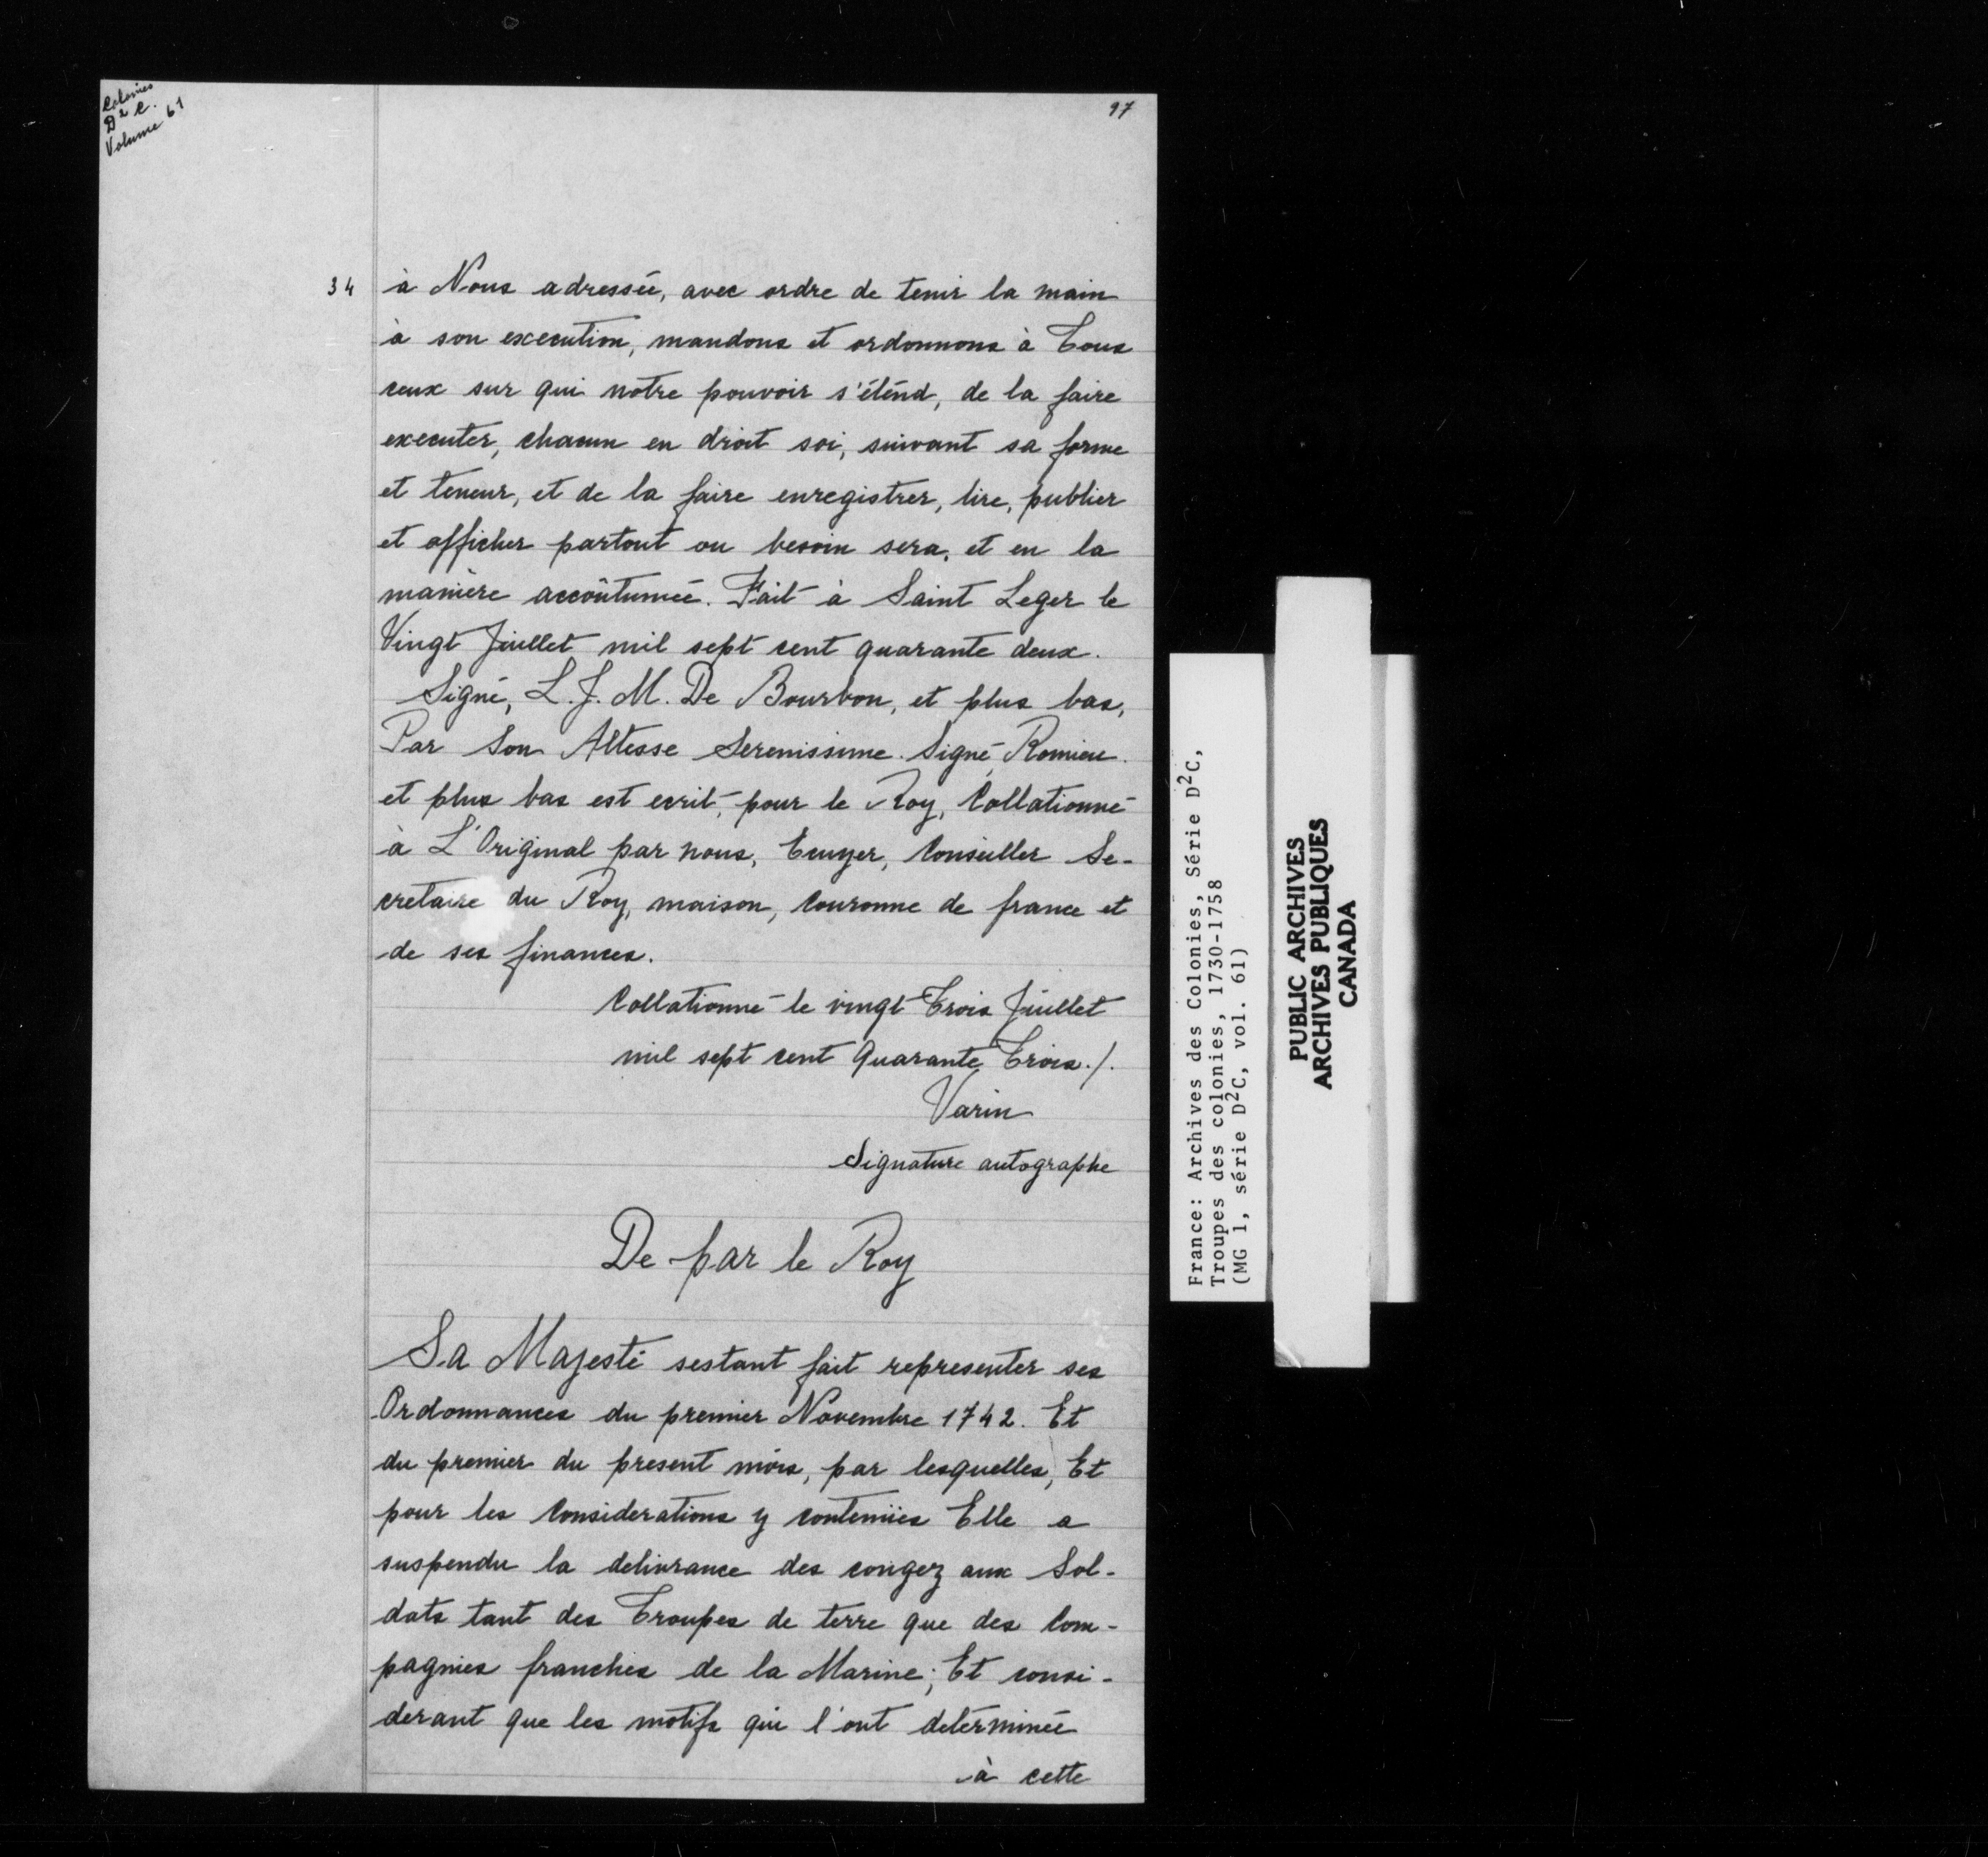 Colonies
D² C.
Volume 61
97
34
à Nous adressée, avec ordre de tenir la main
à son execution, mandons et ordonnons à Tous
ceux sur qui notre pouvoir s'éténd, de la faire
executer, chacun en droit soi, suivant sa forme
et teneur, et de la faire enregistrer, lire, publier
et afficher partout ou besoin sera, et en la
manière accoûtumée. Fait à Saint Leger le
Vingt Juillet mil sept cent quarante deux.
Signé, L. J. M. De Bourbon, et plus bas,
Par Son Altesse Serenissime. Signé, Romieu.
et plus bas est ecrit, pour le Roy, Collationné
à L'Original par nous, Ecuyer, Conseiller Se-
cretaire du Roy, maison, Couronne de france et
de ses finances.
Collationné le vingt Trois Juillet
mil sept cent Quarante Trois./.
Varin
Signature autographe
De par le Roy
Sa Majesté sestant fait representer ses
Ordonnances du premier Novembre 1742. Et
du premier du present mois, par lesquelles, Et
pour les Considerations y contenües Elle a
suspendu la delivrance des congez aux Sol-
dats tant des Troupes de terre que des Com-
pagnies franches de la Marine; Et consi-
derant que les motifs qui l'ont determinée
à cette
France: Archives des Colonies, Série D²C,
Troupes des colonies, 1730-1758
(MG 1, série D²C, vol. 61)
PUBLIC ARCHIVES
ARCHIVES PUBLIQUES
CANADA